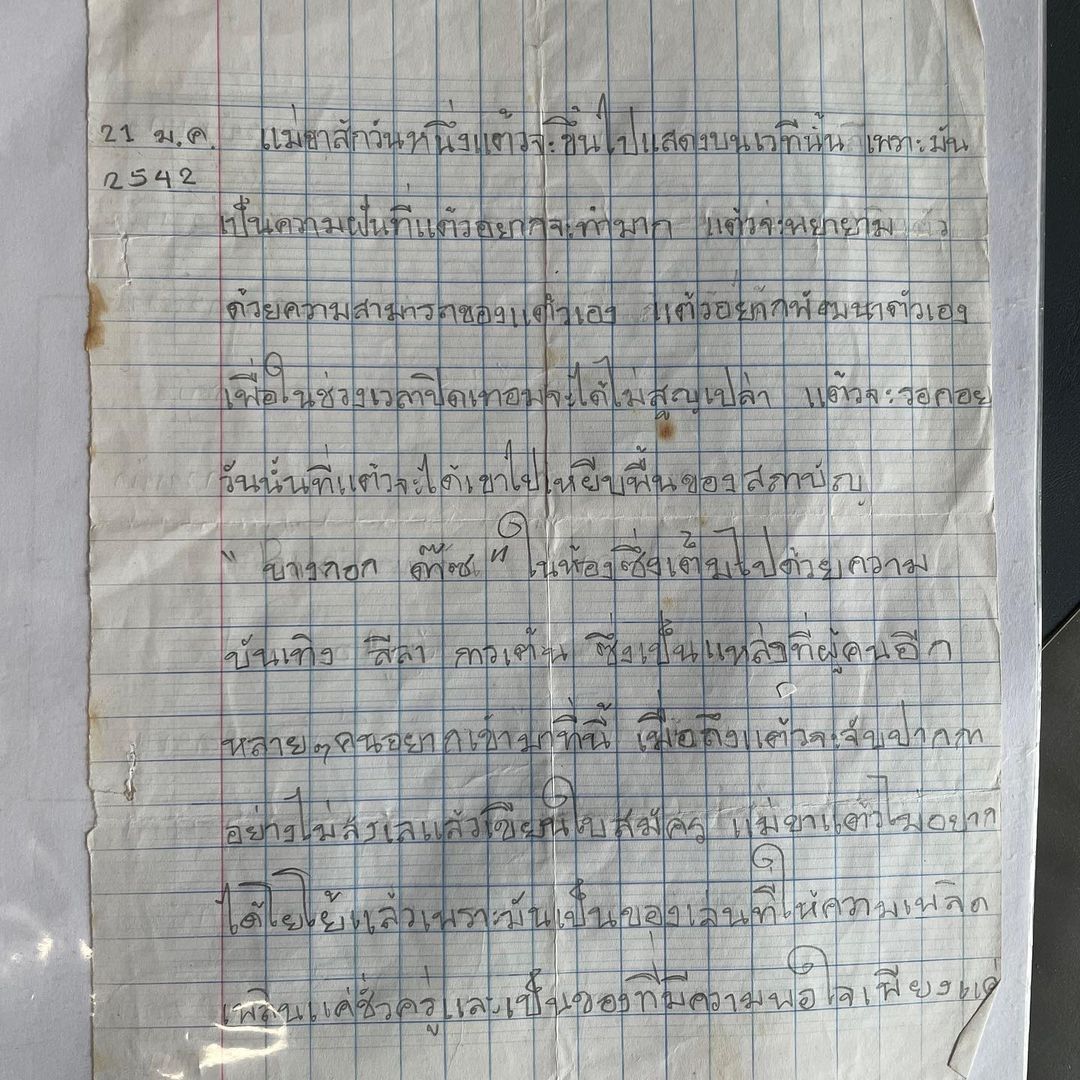 21 ม.ค. แม่ขาสักวันหนึ่งแต้วจะขึ้นไปแสดงบนเวทีนั้น เพราะมัน
2542
เป็นความฝันที่แต้วอยากจะทำมาก แต้วจะพยายาม
ด้วยความสามารถของแต้วเอง แต้วอยากพัฒนาตัวเอง
เพื่อในช่วงเวลาปิดเทอมจะได้ไม่สูญเปล่า แต้วจะรอคอย
วันนั้นที่แต้วจะได้เข้าไปเหยียบพื้นของสถาบัญ
" บางกอก ด๊ซ " ในห้องซึ่งเต็มไปด้วยความ
บันเทิง ลีลา การเต้น ซึ่งเป็นแหล่งที่ผู้คนอีก
หลายๆคนอยากเข้ามาที่นี้ เมื่อถึงแต้วจะจับปากกา
อย่างไม่ลังเลแล้วเขียนใบสมัคร แม่ขาแต้วไม่อยาก
ได้โยโย้แล้วเพราะมันเป็นของเล่นที่ให้ความเพลิด
เพลินแค่ชั่วครู่และเป็นของที่มีความพอใจเพียงแค่